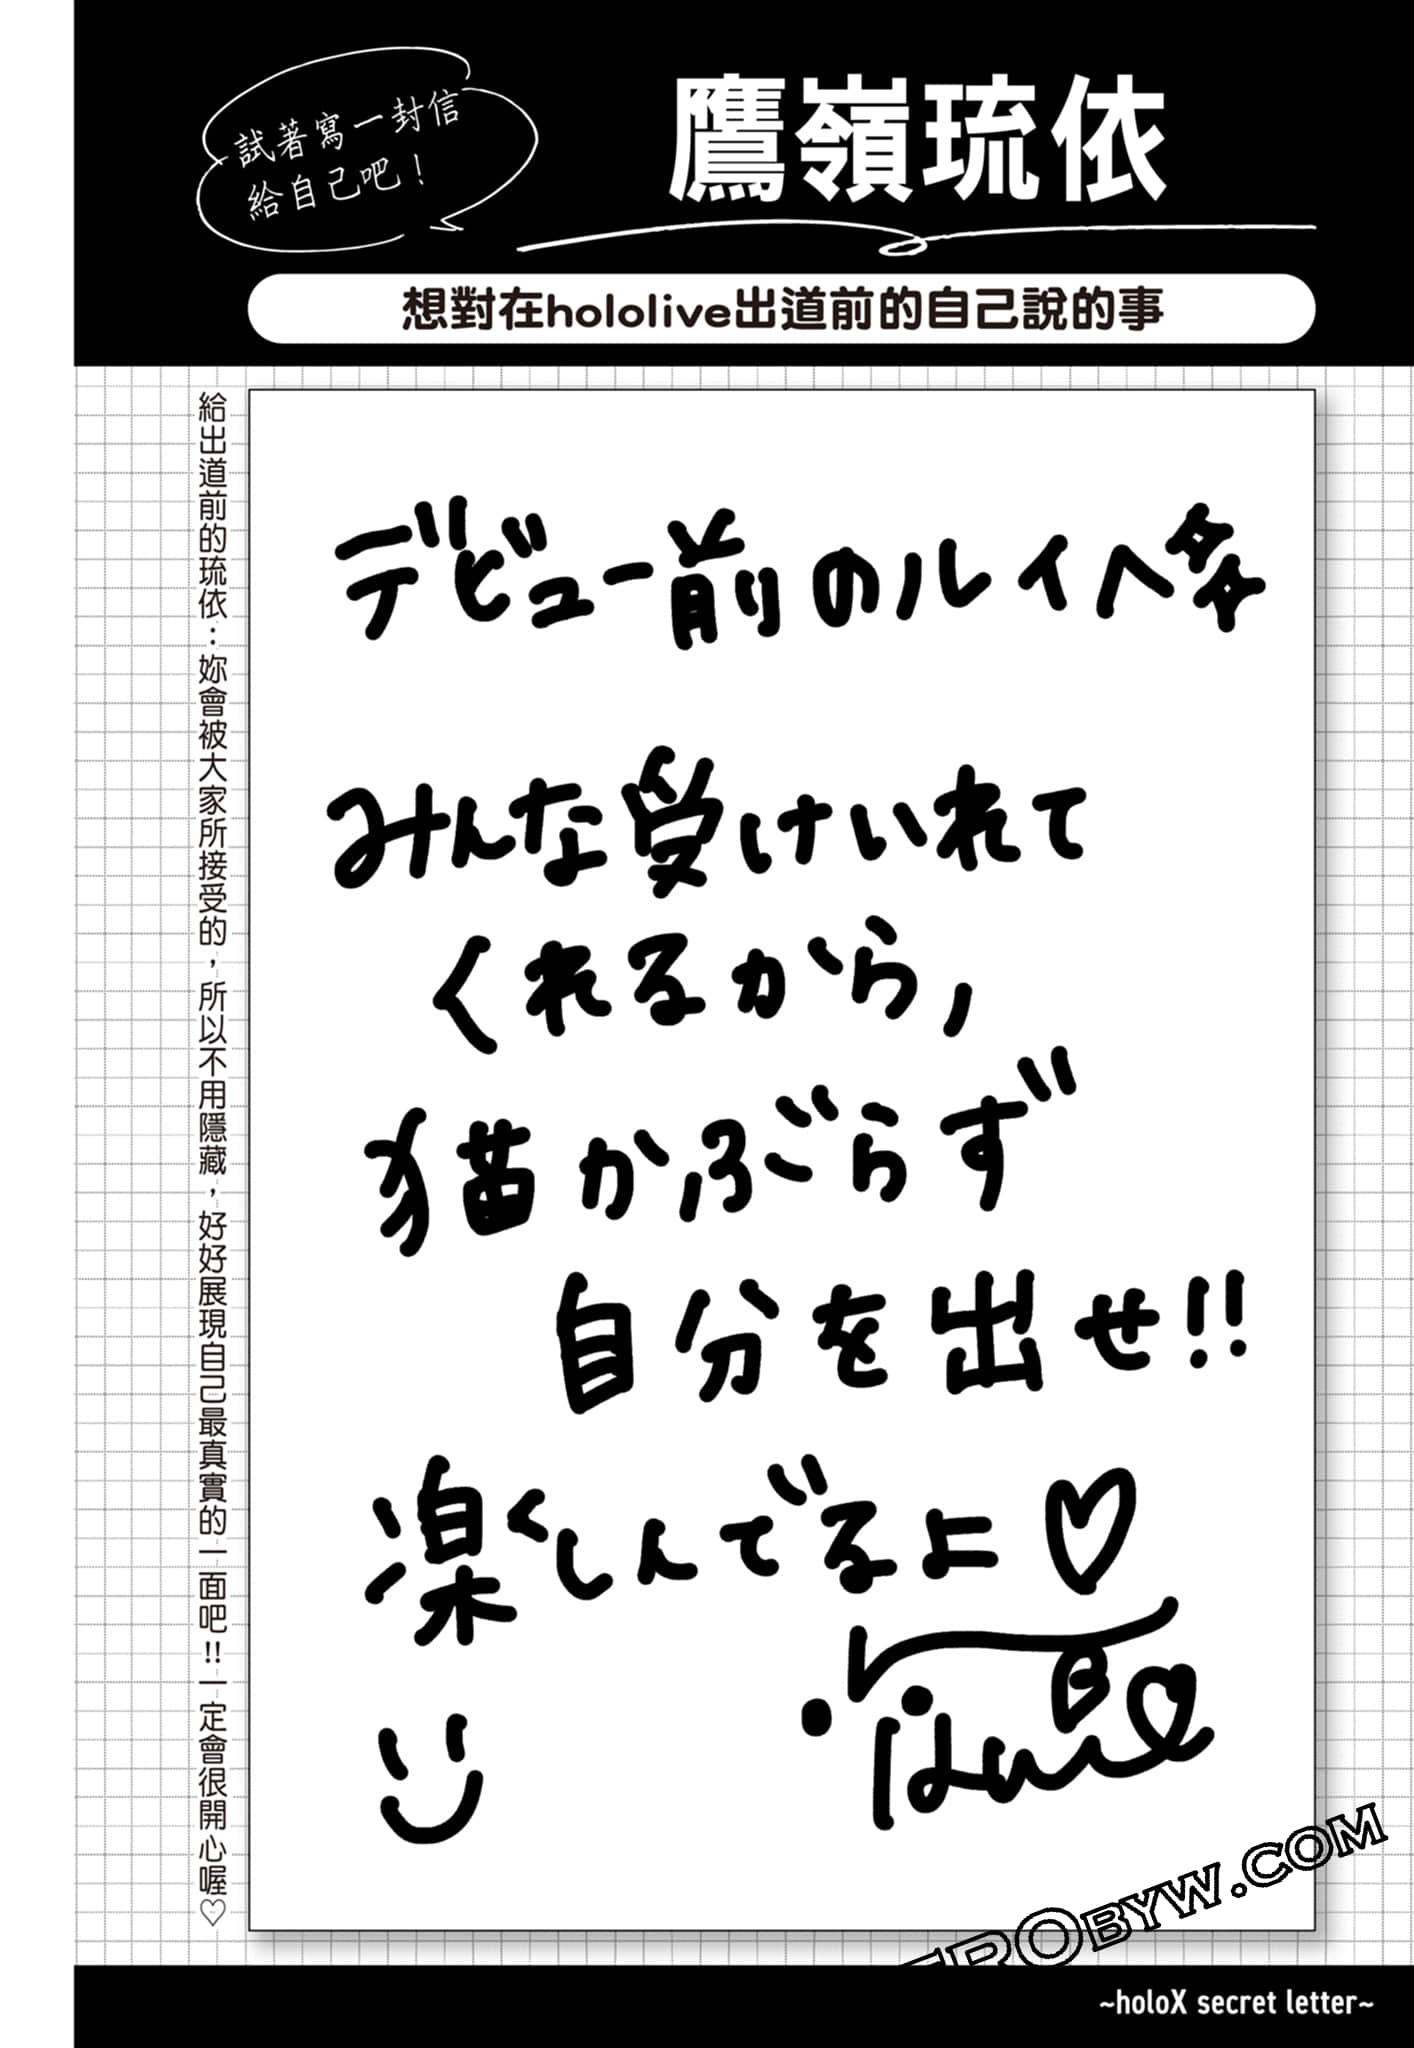 試著寫一封信
給自己吧！
鷹嶺琉依
想對在hololive出道前的自己說的事
給出道前的琉依：妳會被大家所接受的，所以不用隱藏，好好展現自己最真實的一面吧!!一定會很開心喔♡
デビュー前のルイへ
みんな受けいれて
くれるから,
猫かぶらず
自分を出せ!!
楽しんでるよ♡
~holoX secret letter~